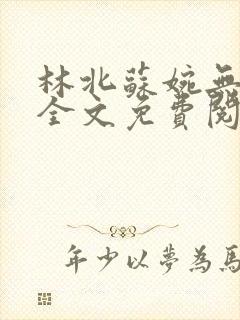 林北蘇婉無
全文免費閱
年少以夢為馬